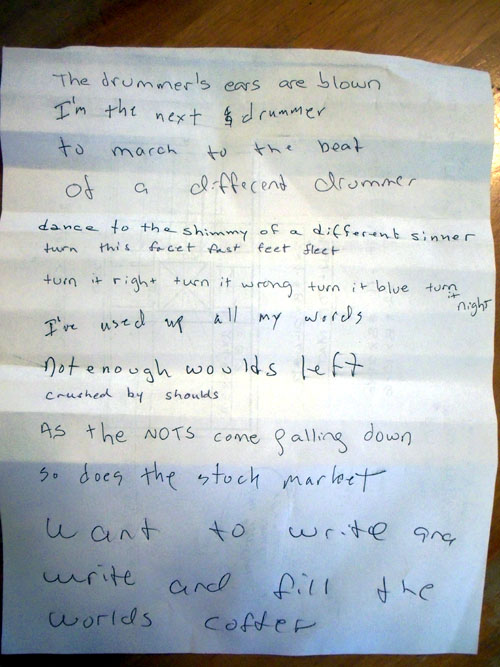 The drummer's ears are blown
I'm the next drummer
to march to the beat
of a different drummer
dance to the shimmy of a different sinner
turn this facet fast feet fleet
turn it right turn it wrong turn it blue turn it night
I've used up all my words
Not enough woulds left
crushed by shoulds
As the NOTS come falling down
so does the stock market
Want to write and
write and fill the
worlds coffer